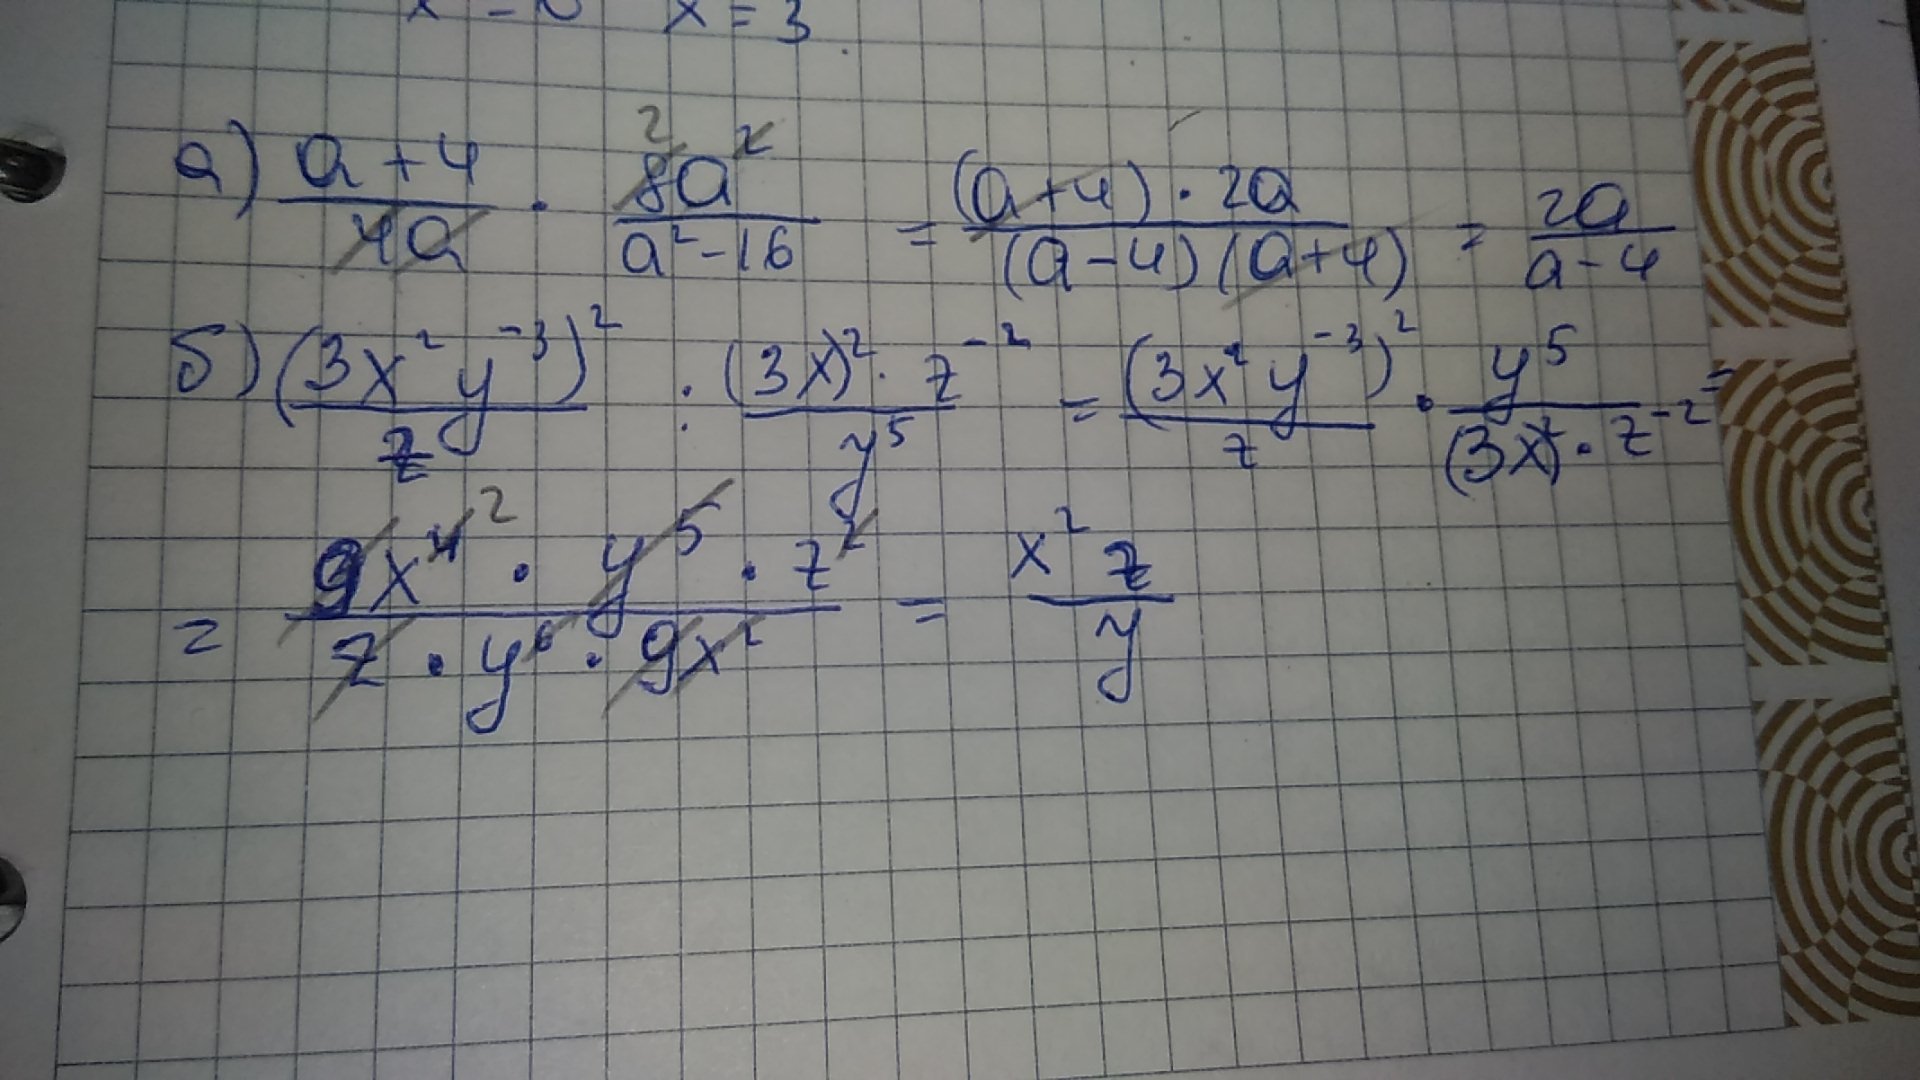 x = 3
а) (a+4)/(4a) · (8a²)/(a²-16) = ((a+4)·2a)/((a-4)(a+4)) = 2a/(a-4)
б) (3x²y⁻³)²/z : ((3x)²·z⁻²)/y⁵ = (3x²y⁻³)²/z · y⁵/((3x)²·z⁻²) =
= (9x⁴·y⁵·z²)/(z·y⁶·9x²) = x²z/y